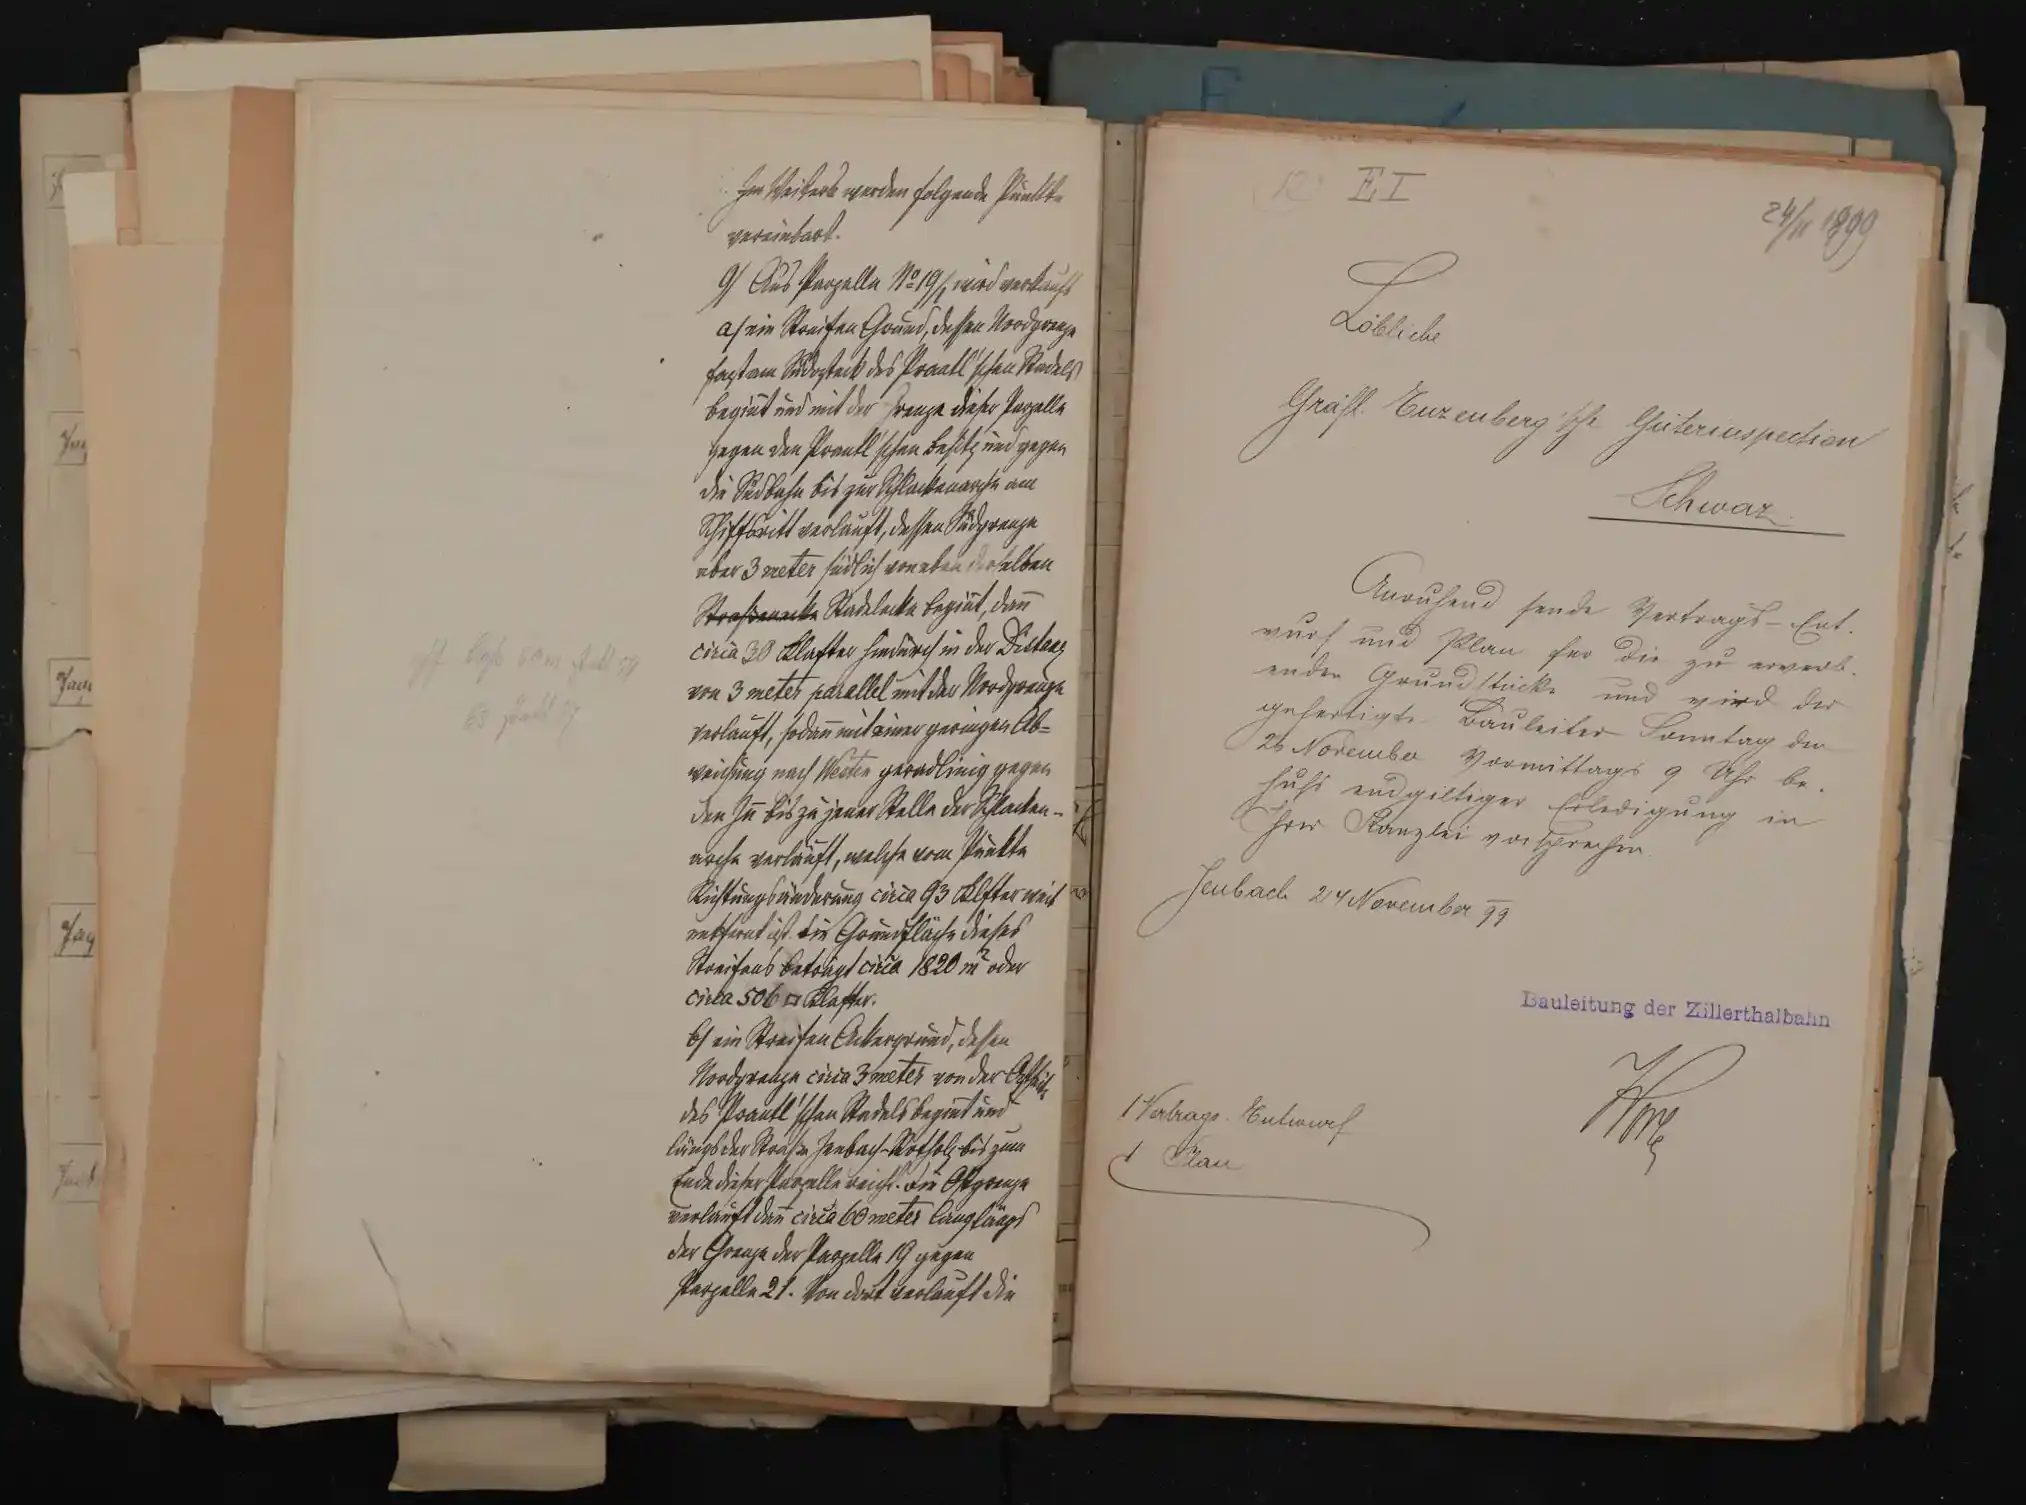 Im Weitern werden folgende Punkte
vereinbart.
9/ Aus Parzelle No 19/1 wird verkauft
a/ ein Streifen Grund, dessen Nordgrenze
fast am Südosteck des Prantl'schen Stadels
begint und mit der Grenze dieser Parzelle
gegen den Prantl'schen Besitz und gegen
die Südbahn bis zur Schlackenarche am
Schiffsritt verlauft, dessen Südgrenze
aber 3 meter südlich von eben derselben
Straßenecke Stadelecke begint, dann
circa 30 Klafter hindurch in der Distanz
von 3 meter parallel mit der Nordgrenze
verlauft, sodann mit einer geringen Ab=
weichung nach Westen geradlinig gegen
den Inn bis zu jener Stelle der Schlacken-
arche verlauft, welche vom Punkte
Richtungsänderung circa 93 Klfter weit
entfernt ist. Die Grundfläche dieses
Streifens beträgt circa 1820 m² oder
circa 506 □ Klafter.
b/ ein Streifen Ackergrund, dessen
Nordgrenze circa 3 meter von der Ostseite
des Prantl'schen Stadels begint und
längs der Straße Jenbach-Rotholz bis zum
Ende dieser Parzelle reicht. Die Ostgrenze
verlauft dann circa 60 meter lang längs
der Grenze der Parzelle 19 gegen
Parzelle 21. Von dort verlauft die
12 E I
24/11 1899
Löbliche
Gräfl. Enzenberg'sche Güterinspection
Schwaz.
Anruhend sende Vertrags-Ent-
wurf und Plan für die zu erwerb-
enden Grundstücke und wird der
gefertigte Bauleiter Sonntag den
26 November Vormittags 9 Uhr be-
hufs endgiltiger Erledigung in
Ihrer Kanzlei vorsprechen.
Jenbach 24 November 99
Bauleitung der Zillerthalbahn
1 Vertrags-Entwurf
1 Plan